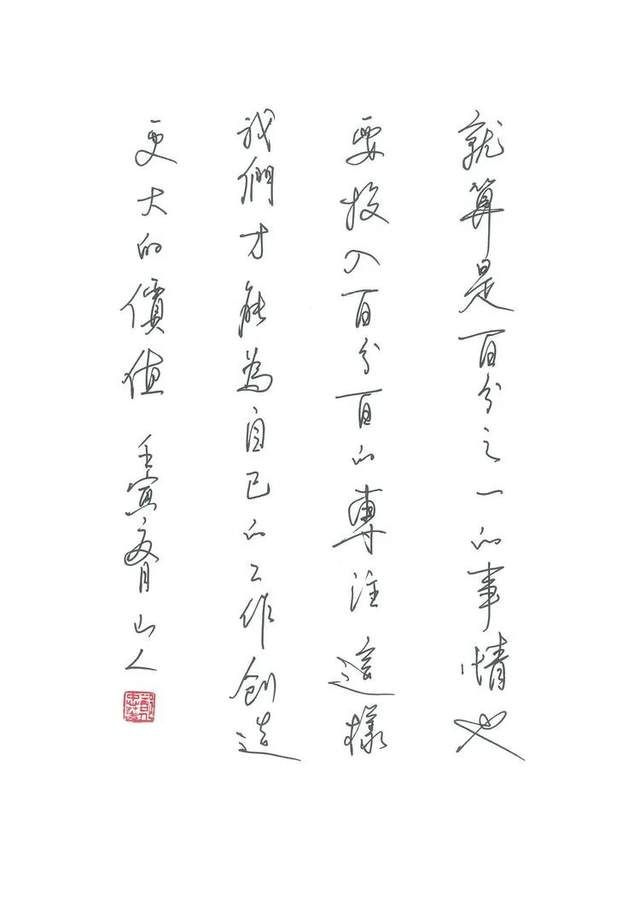 就算是百分之一的事情也
要投入百分百的專注這樣
我們才能為自己的工作創造
更大的價值 壬寅 山人